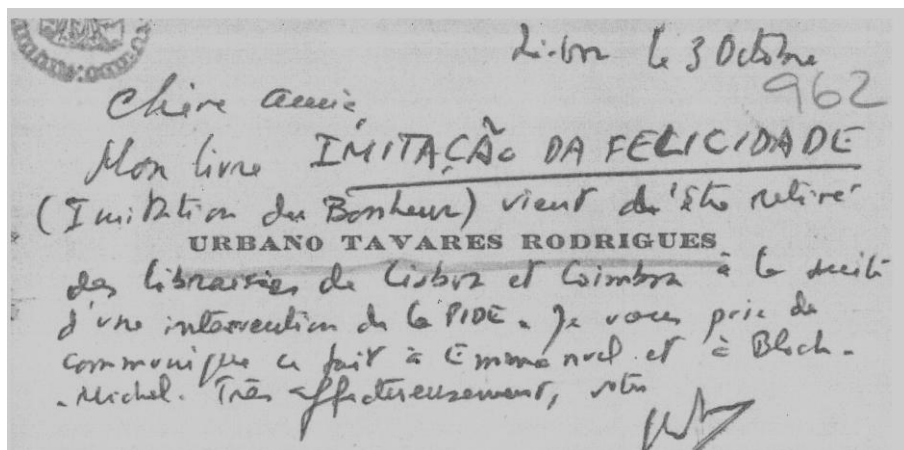 Lisboa le 3 Octobre
962
Chère Amie
Mon livre IMITAÇÃO DA FELICIDADE
(Imitation du Bonheur) vient d'être retiré
URBANO TAVARES RODRIGUES
des librairies de Lisboa et Coimbra à la suite
d'une intervention de la PIDE. Je vous prie de
communiquer ce fait à Emmanuel et à Bloch-
-Michel. Très affectueusement, votre